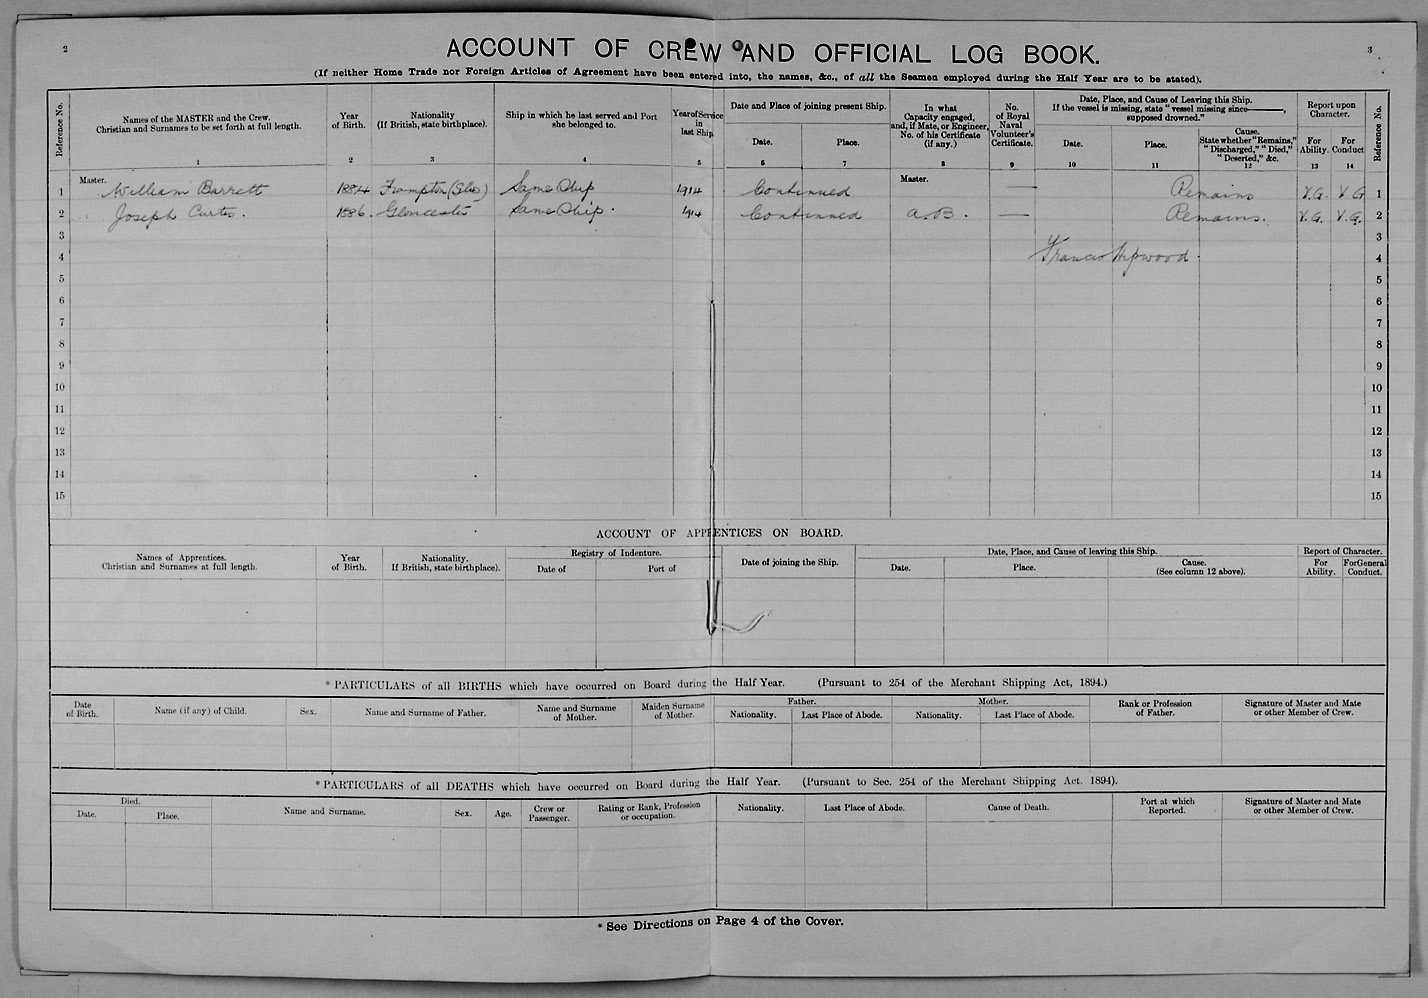 2
3
ACCOUNT OF CREW AND OFFICIAL LOG BOOK.
(If neither Home Trade nor Foreign Articles of Agreement have been entered into, the names, &c., of all the Seamen employed during the Half Year are to be stated).
Reference No.
Names of the MASTER and the Crew.
Christian and Surnames to be set forth at full length.
1
Year
of Birth.
2
Nationality
(If British, state birthplace).
3
Ship in which he last served and Port
she belonged to.
4
Year of Service
in
last Ship.
5
Date and Place of joining present Ship.
Date.
6
Place.
7
In what
Capacity engaged,
and, if Mate, or Engineer,
No. of his Certificate
(if any.)
8
No.
of Royal
Naval
Volunteer's
Certificate.
9
Date, Place, and Cause of Leaving this Ship.
If the vessel is missing, state "vessel missing since———,
supposed drowned."
Date.
10
Place.
11
Cause.
State whether "Remains,"
"Discharged," "Died,"
"Deserted," &c.
12
Report upon
Character.
For
Ability.
13
For
Conduct
14
Reference No.
1 Master. William Barrett 1884 Frampton (Glos) Same Ship 1914 Continued Master. — Remains V.G. V G 1
2 Joseph Curtis. 1886. Gloucester Same Ship. 1914 Continued A.B. — Remains. V.G. V.G. 2
3 3
4 Francis Hipwood 4
5 5
6 6
7 7
8 8
9 9
10 10
11 11
12 12
13 13
14 14
15 15
ACCOUNT OF APPRENTICES ON BOARD.
Names of Apprentices.
Christian and Surnames at full length.
Year
of Birth.
Nationality.
If British, state birthplace).
Registry of Indenture.
Date of
Port of
Date of joining the Ship.
Date, Place, and Cause of leaving this Ship.
Date.
Place.
Cause.
(See column 12 above).
Report of Character.
For
Ability.
For General
Conduct.
* PARTICULARS of all BIRTHS which have occurred on Board during the Half Year. (Pursuant to 254 of the Merchant Shipping Act, 1894.)
Date
of Birth.
Name (if any) of Child.
Sex.
Name and Surname of Father.
Name and Surname
of Mother.
Maiden Surname
of Mother.
Father.
Nationality.
Last Place of Abode.
Mother.
Nationality.
Last Place of Abode.
Rank or Profession
of Father.
Signature of Master and Mate
or other Member of Crew.
* PARTICULARS of all DEATHS which have occurred on Board during the Half Year. (Pursuant to Sec. 254 of the Merchant Shipping Act. 1894).
Died.
Date.
Place.
Name and Surname.
Sex.
Age.
Crew or
Passenger.
Rating or Rank, Profession
or occupation.
Nationality.
Last Place of Abode.
Cause of Death.
Port at which
Reported.
Signature of Master and Mate
or other Member of Crew.
* See Directions on Page 4 of the Cover.